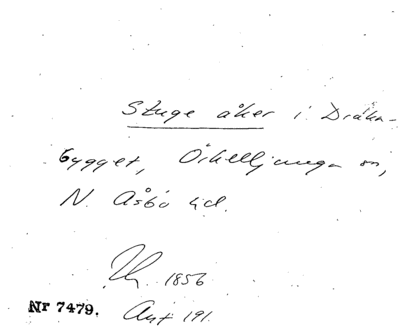 Stuge åker i Dräkn-
bygget, Örkelljunga sn,
N. Åsbo hd.
1856
Nr 7479. Avt 191.